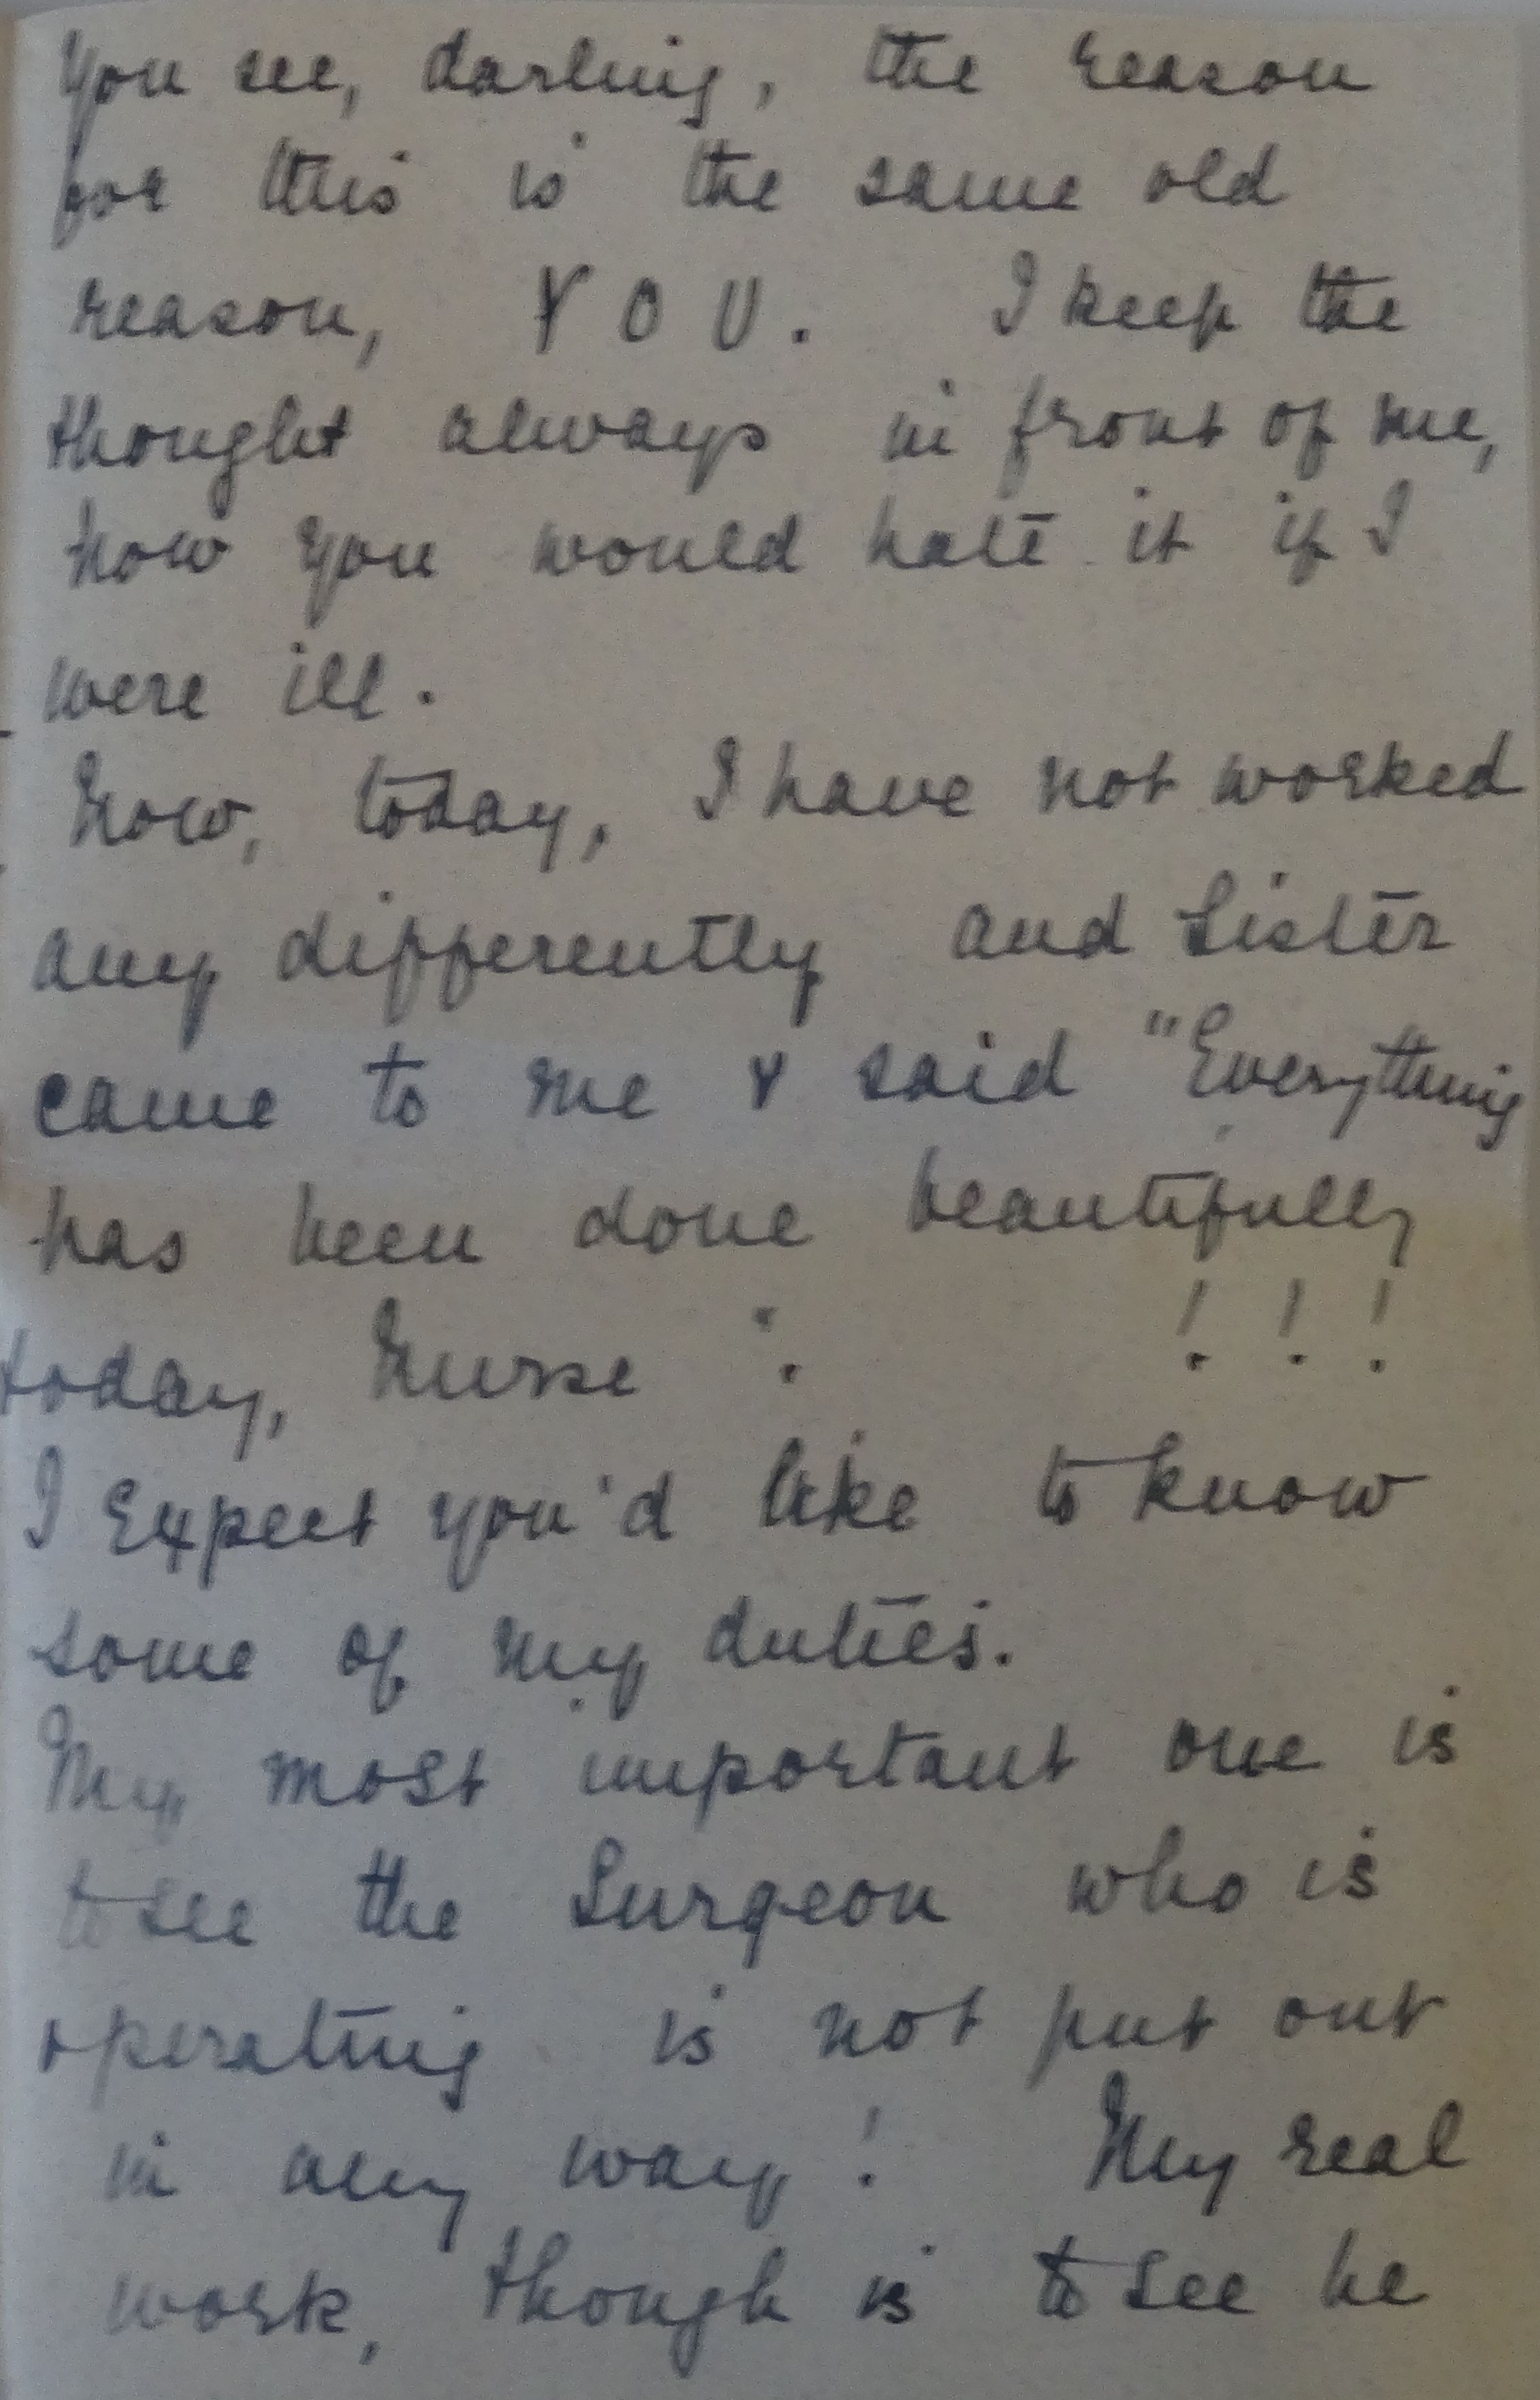 You see, darling, the reason
for this is the same old
reason, YOU. I keep the
thought always in front of me,
how you would hate it if I
were ill.
Now, today, I have not worked
any differently and Sister
came to me & said "Everything
has been done beautifully
today, Nurse". !!!
I Expect you'd like to know
some of my duties.
My most important one is
to see the Surgeon who is
operating is not put out
in any way! My real
work, though is to see he